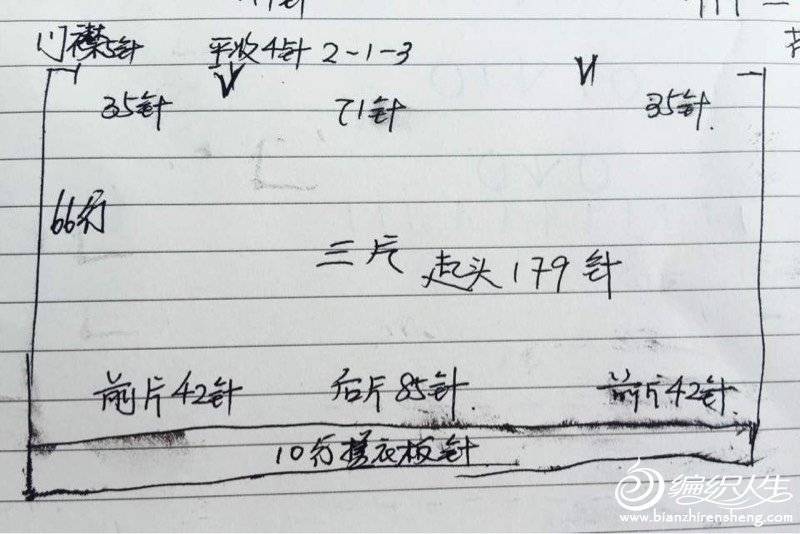 门襟5针 平收4针 2-1-3
35针 71针 35针
66行
三片 起头179针
前片42针 后片85针 前片42针
10行搓衣板针
编织人生
www.bianzhirensheng.com